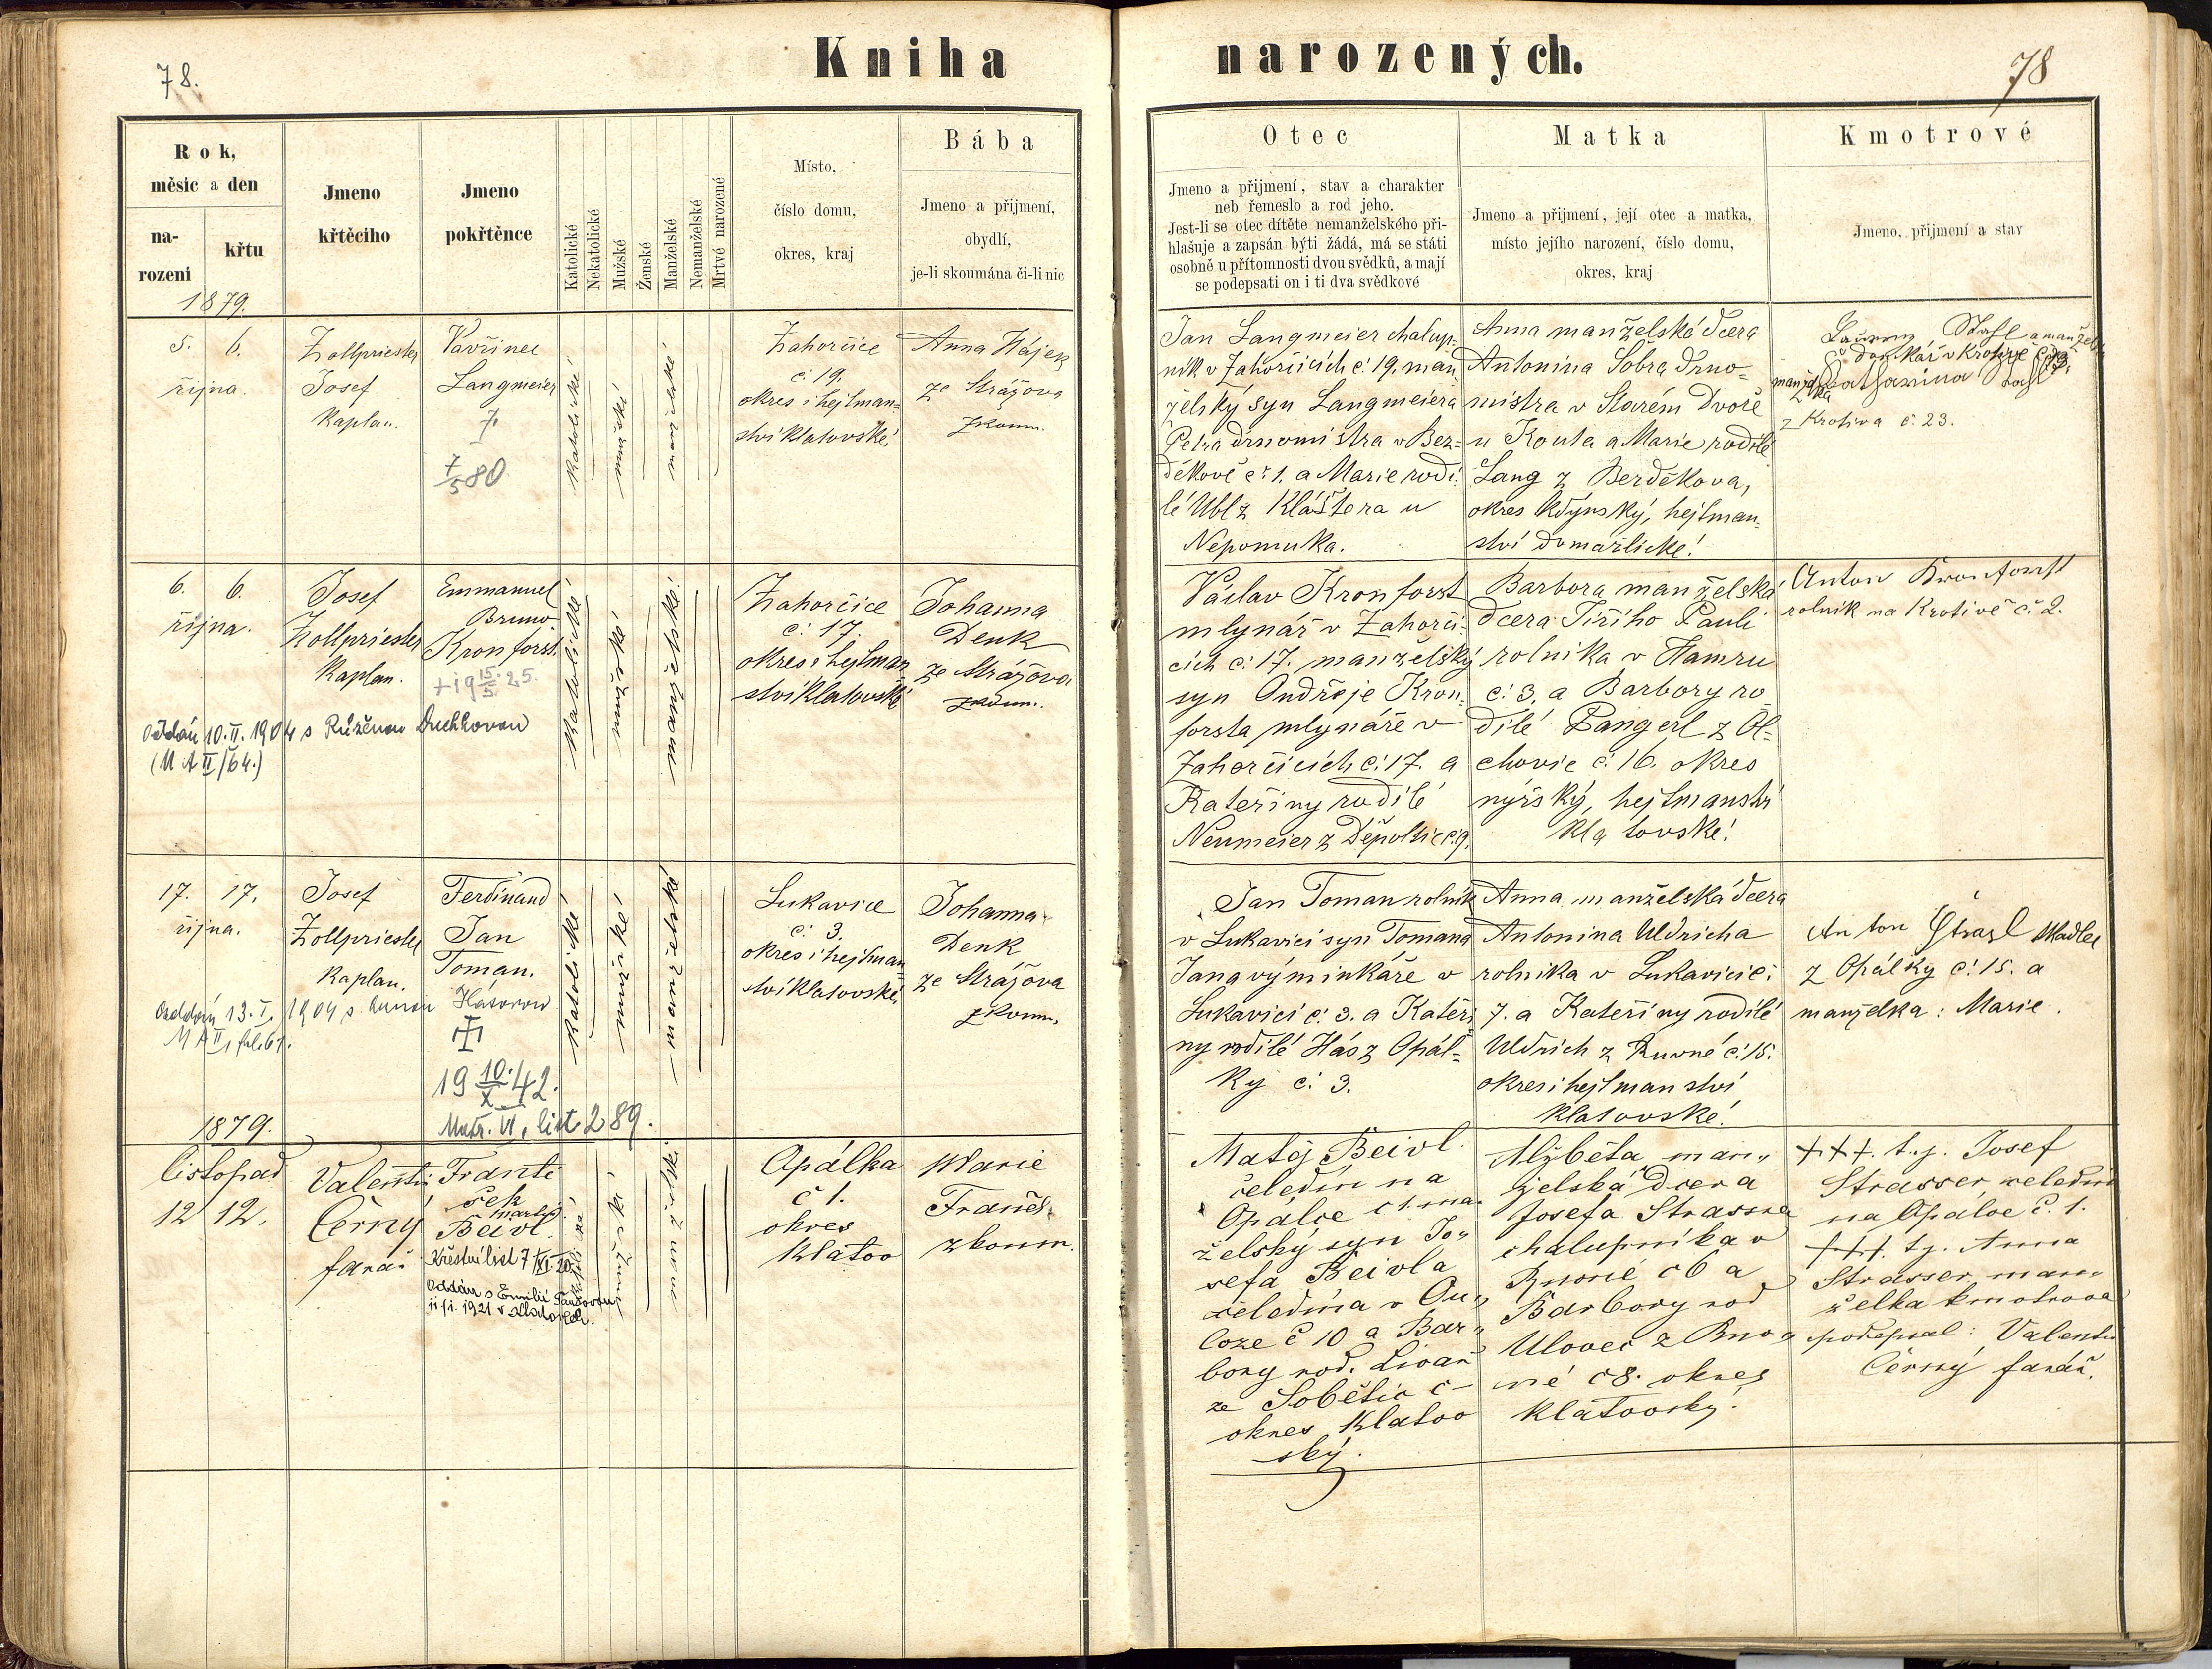 78.
Kniha narozených.
78
Rok,
měsíc a den
na-
rození
křtu
1879.
Jmeno
křtěcího
Jmeno
pokřtěnce
Katolické
Nekatolické
Mužské
Ženské
Manželské
Nemanželské
Mrtvé narozené
Místo,
číslo domu,
okres, kraj
Bába
Jmeno a přijmení,
obydlí,
je-li skoumána či-li nic
Otec
Jmeno a přijmení, stav a charakter
neb řemeslo a rod jeho.
Jest-li se otec dítěte nemanželského při-
hlašuje a zapsán býti žádá, má se státi
osobně u přítomnosti dvou svědků, a mají
se podepsati on i ti dva svědkové
Matka
Jmeno a přijmení, její otec a matka,
místo jejího narození, číslo domu,
okres, kraj
Kmotrové
Jmeno, přijmení a stav
5. 6.
října.
Zollpriester
Josef
Kaplan.
Vavřinec
Langmeier
7/5 80
katolické
mužské
manželské
Zahorčice
č. 19.
okres i hejtman=
ství Klatovské.
Anna Hájek
ze Strážova
zkoum.
Jan Langmeier chalup-
ník v Zahorčicích č 19. man
želský syn Langmeiera
Petra drnomistra v Bez=
děkově č. 1. a Marie rodi-
lé Ubl z Kláštera u
Nepomuka.
Anna manželská dcera
Antonina Sobra drno=
mistra v Starém Dvoře
u Kouta a Marie rodilé
Lang z Berděkova,
okres Kdýnský, hejtman-
ství domažlické.
z Krotiva č. 23.
6. 6.
října.
Josef
Zollpriester
Kaplan.
Emmanuel
Bruno
Kronforst.
+ 19 15/5. 25.
Oddán 10. II. 1904 s Růženou Duchkovou
(M A II/64.)
katolické
mužské
manželské
Zahorčice
č. 17.
okres i hejtman
ství Klatovské
Johanna
Denk
ze Strážova
zkoum.
Václav Kronforst
mlynář v Zahorči-
cích č. 17. manželský
syn Ondřeje Kron-
forsta mlynáře v
Zahorčicích č. 17. a
Kateřiny rodilé
Neumeier z Děpoltic č. 9.
Barbora manželská
dcera Jiřího Pauli
rolníka v Hamru
č. 3. a Barbory ro
dilé Pangerl z Ol=
chovic č. 16. okres
nýrský, hejtmanství
klatovské.
Anton Kronforst
rolník na Krotivě č. 2.
17. 17.
října.
Josef
Zollpriester
Kaplan.
Ferdinand
Jan
Toman.
Oddán 13. I. 1904 s Annou Hásovou
M A II, fol. 61.
19 10./X. 42.
Matr. VI, list 289.
katolické
mužské
manželské
Lukavice
č. 3.
okres i hejtman
ství Klatovské,
Johanna
Denk
ze Strážova
zkoum.
Jan Toman rolník
v Lukavici syn Tomana
Jana výminkáře v
Lukavici č. 3. a Kateři
ny rodilé Hás z Opál=
ky č. 3.
Anna manželská dcera
Antonina Uldricha
rolníka v Lukavici č.
7. a Kateřiny rodilé
Uldrich z Ruvné č. 15.
okres i hejtmanství
klatovské.
Anton
z Opálky č. 15. a
manželka: Marie.
1879.
listopad
12 12.
Valentin
Černý
farář
Franti
šek
Martin
Beivl.
Křestní list 7/XI. 20.
Oddán s Emilií
11/i. 1921 v
mužské
Opálka
č 1.
okres
Klatov
Marie
zkoum.
Matěj Beivl
čeledín na
Opálce č 1. ma-
želský syn Jo-
sefa Beivla
čeledína v Ou-
loze č 10 a Bar-
bory rod.
ze Sobětic č -
okres Klatov
ský.
Alžběta man-
želská dcera
Josefa Strassra
chalupníka v
č 6 a
Barbory rod
z
né č 8. okres
klatovský.
+++. t.j. Josef
Strasser čeledín
na Opálce č. 1.
+++. tj. Anna
Strasser man-
želka kmotrova
podepsal: Valentin
Černý farář.